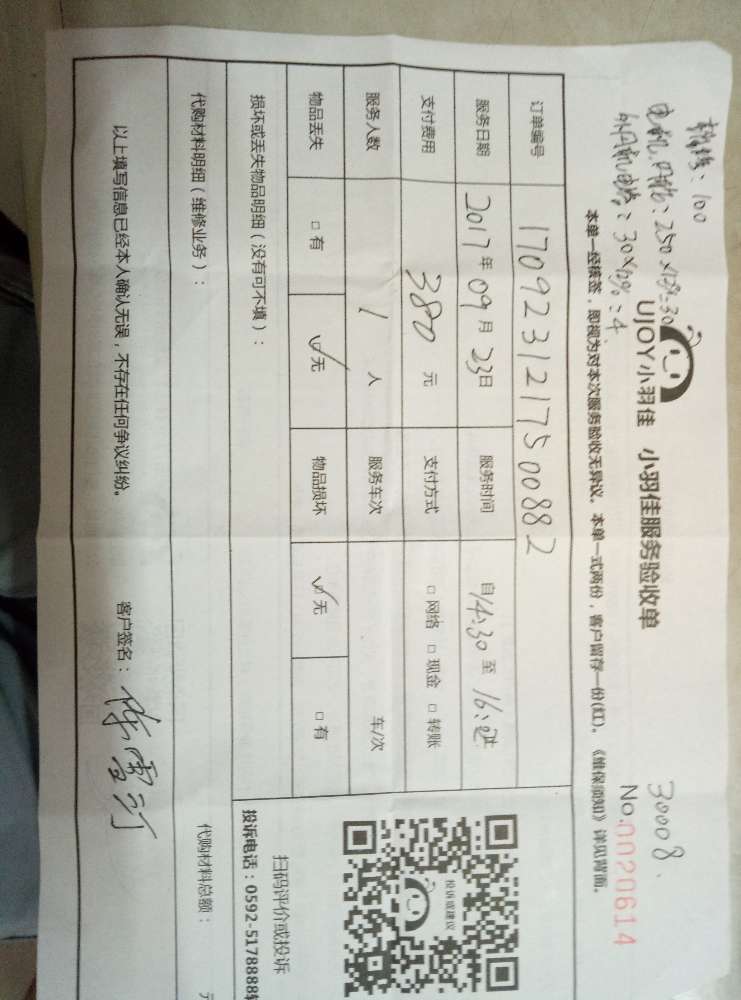 100
30008
UJOY小羽佳 小羽佳服务验收单
No.0020614
本单一经核签，即视为对本次服务验收无异议。本单一式两份，客户留存一份(红)。《维保须知》详见背面。
订单编号 1709231217500882
服务日期 2017年09月23日 服务时间 自14:30至16:
支付费用 380元 支付方式 □网络 □现金 □转账
服务人数 1人 服务车次 车/次
物品丢失 □有 ☑无 物品损坏 ☑无 □有
损坏或丢失物品明细（没有可不填）：
投诉或建议
扫码评价或投诉
投诉电话：0592-5178888转
代购材料明细（维修业务）： 代购材料总额：
以上填写信息已经本人确认无误，不存在任何争议纠纷。 客户签名：